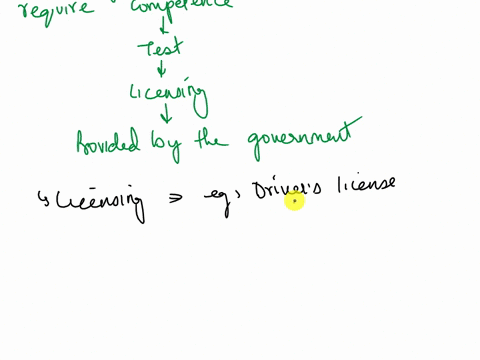 require competence
↓
Test
↓
Licensing
↓
Provided by the government
↳ Licensing ⇒ eg, Driver's license